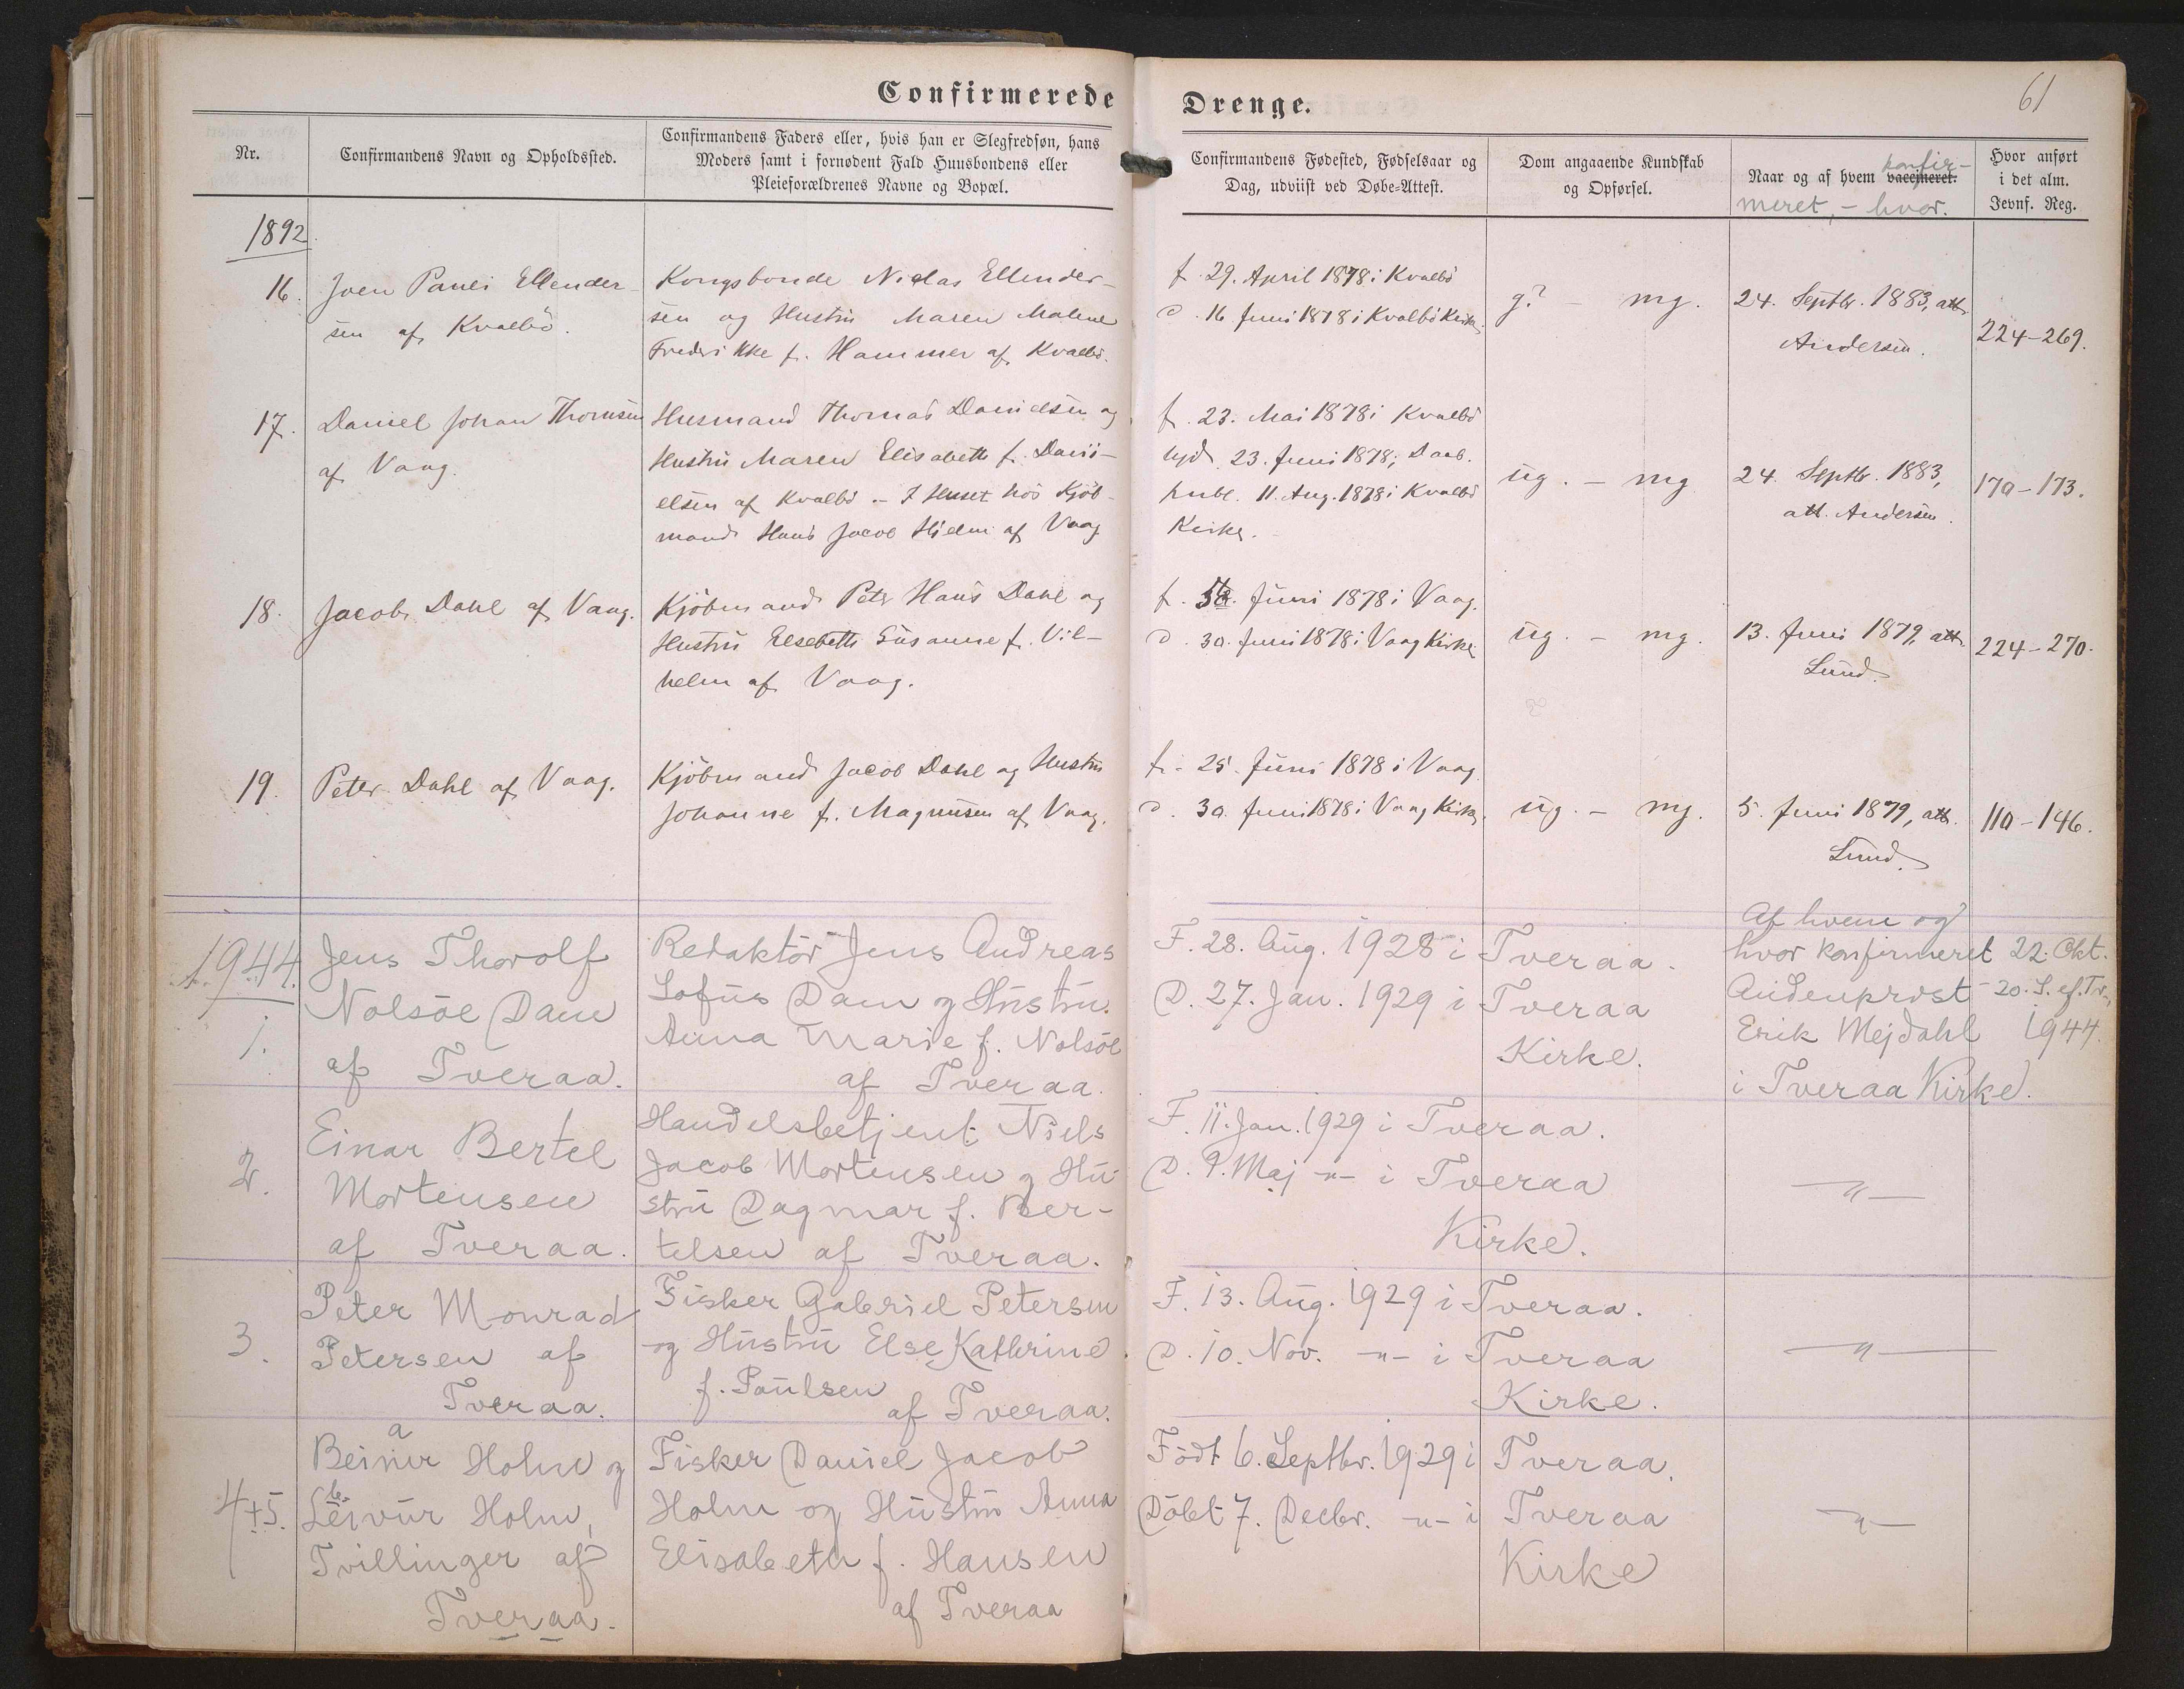 Confirmerede Drenge.
61
Nr.
Confirmandens Navn og Opholdssted.
Confirmandens Faders eller, hvis han er Slegfredsøn, hans
Moders samt i fornødent Fald Huusbondens eller
Pleieforældrenes Navne og Bopæl.
Confirmandens Fødested, Fødselsaar og
Dag, udviist ved Døbe-Attest.
Dom angaaende Kundskab
og Opførsel.
Naar og af hvem vaccineret. konfir-
meret, - hvor.
Hvor anført
i det alm.
Jevnf. Reg.
1892
16.
Joen Pauli Ellender-
sen af Kvalbö.
Kongsbonde Niclas Ellender-
sen og Hustru Maren Malene
Frederikke f. Hammer af Kvalbö.
f. 29. April 1878 i Kvalbö
d. 16 Juni 1878 i Kvalbö Kirke.
g? - mg.
24. Septbr. 1883, att.
Andersen.
224-269.
17.
Daniel Johan Thomsen
af Vaag.
Husmand Thomas Danielsen og
Hustru Maren Elisabeth f. Dani-
elsen af Kvalbö - I Huset hos Kjöb-
mand Hans Jacob Hjelm af Vaag
f. 23. Mai 1878 i Kvalbö
hjd. 23. Juni 1878; Daab.
publ. 11. Aug. 1878 i Kvalbö
Kirke.
ug. - mg
24. Septbr. 1883,
att. Andersen.
170-173.
18.
Jacob Dahl af Vaag.
Kjöbmand Peter Hans Dahl og
Hustru Elsebeth Susanne f. Vil-
helm af Vaag.
f. Juni 1878 i Vaag.
d. 30. Juni 1878 i Vaag Kirke
ug. - mg.
13. Juni 1879, att.
Lund.
224-270.
19.
Peter Dahl af Vaag.
Kjöbmand Jacob Dahl og Hustru
Johanne f. Magnusen af Vaag.
f. 25. Juni 1878 i Vaag
d. 30. Juni 1878 i Vaag Kirke.
ug. - mg.
5. Juni 1879, att.
Lund.
110-146.
1944.
1.
Jens Thorolf
Nolsöe Dam
af Tveraa.
Redaktör Jens Andreas
Lofus Dam og Hustru
Anna Marie f. Nolsöe
af Tveraa.
F. 28. Aug. 1928 i Tveraa.
D. 27. Jan. 1929 i Tveraa
Kirke.
Af hvem og
hvor konfirmeret 22. Okt.
Andenprest - 20. S. ef. Tr.,
Erik Mejdahl 1944.
i Tveraa Kirke.
2.
Einar Bertel
Mortensen
af Tveraa.
Handelsbetjent Niels
Jacob Mortensen og Hu-
stru Dagmar f. Ber-
telsen af Tveraa.
F. 11. Jan. 1929 i Tveraa.
D. 9. Maj -"- i Tveraa
Kirke.
-"-
3.
Peter Monrad
Petersen af
Tveraa.
Fisker Gabriel Petersen
og Hustru Else Kathrine
f. Paulsen
af Tveraa.
F. 13. Aug. 1929 i Tveraa.
D. 10. Nov. -"- i Tveraa
Kirke.
-"-
4+5.
a
Beinur Holm og
b.
Leivur Holm,
Tvillinger af
Tveraa.
Fisker Daniel Jacob
Holm og Hustru Anna
Elisabeth f. Hansen
af Tveraa
Födt 6. Septbr. 1929 i Tveraa.
Döbt 7. Decbr. -"- i Tveraa
Kirke
-"-